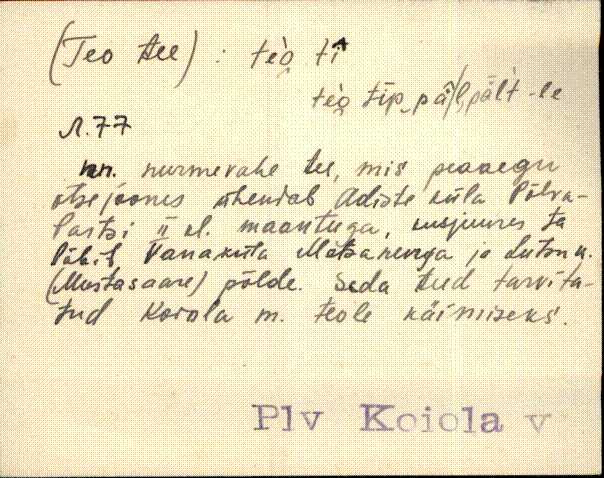 (Teo tee) : teo̭ ti^
teo̭ tip, päl, pält -le
Л.77
nn. nurmevahe tee, mis peaaegu
otsejoones ühendab Adiste küla Põlva-
Partsi II kl. maanteega, kusjuures ta
läbib Vanaküla Metsanurga ja Lutsu k.
(Mustasaare) põlde. Seda teed tarvita-
tud Koiola m. teole käimiseks.
Plv Koiola v